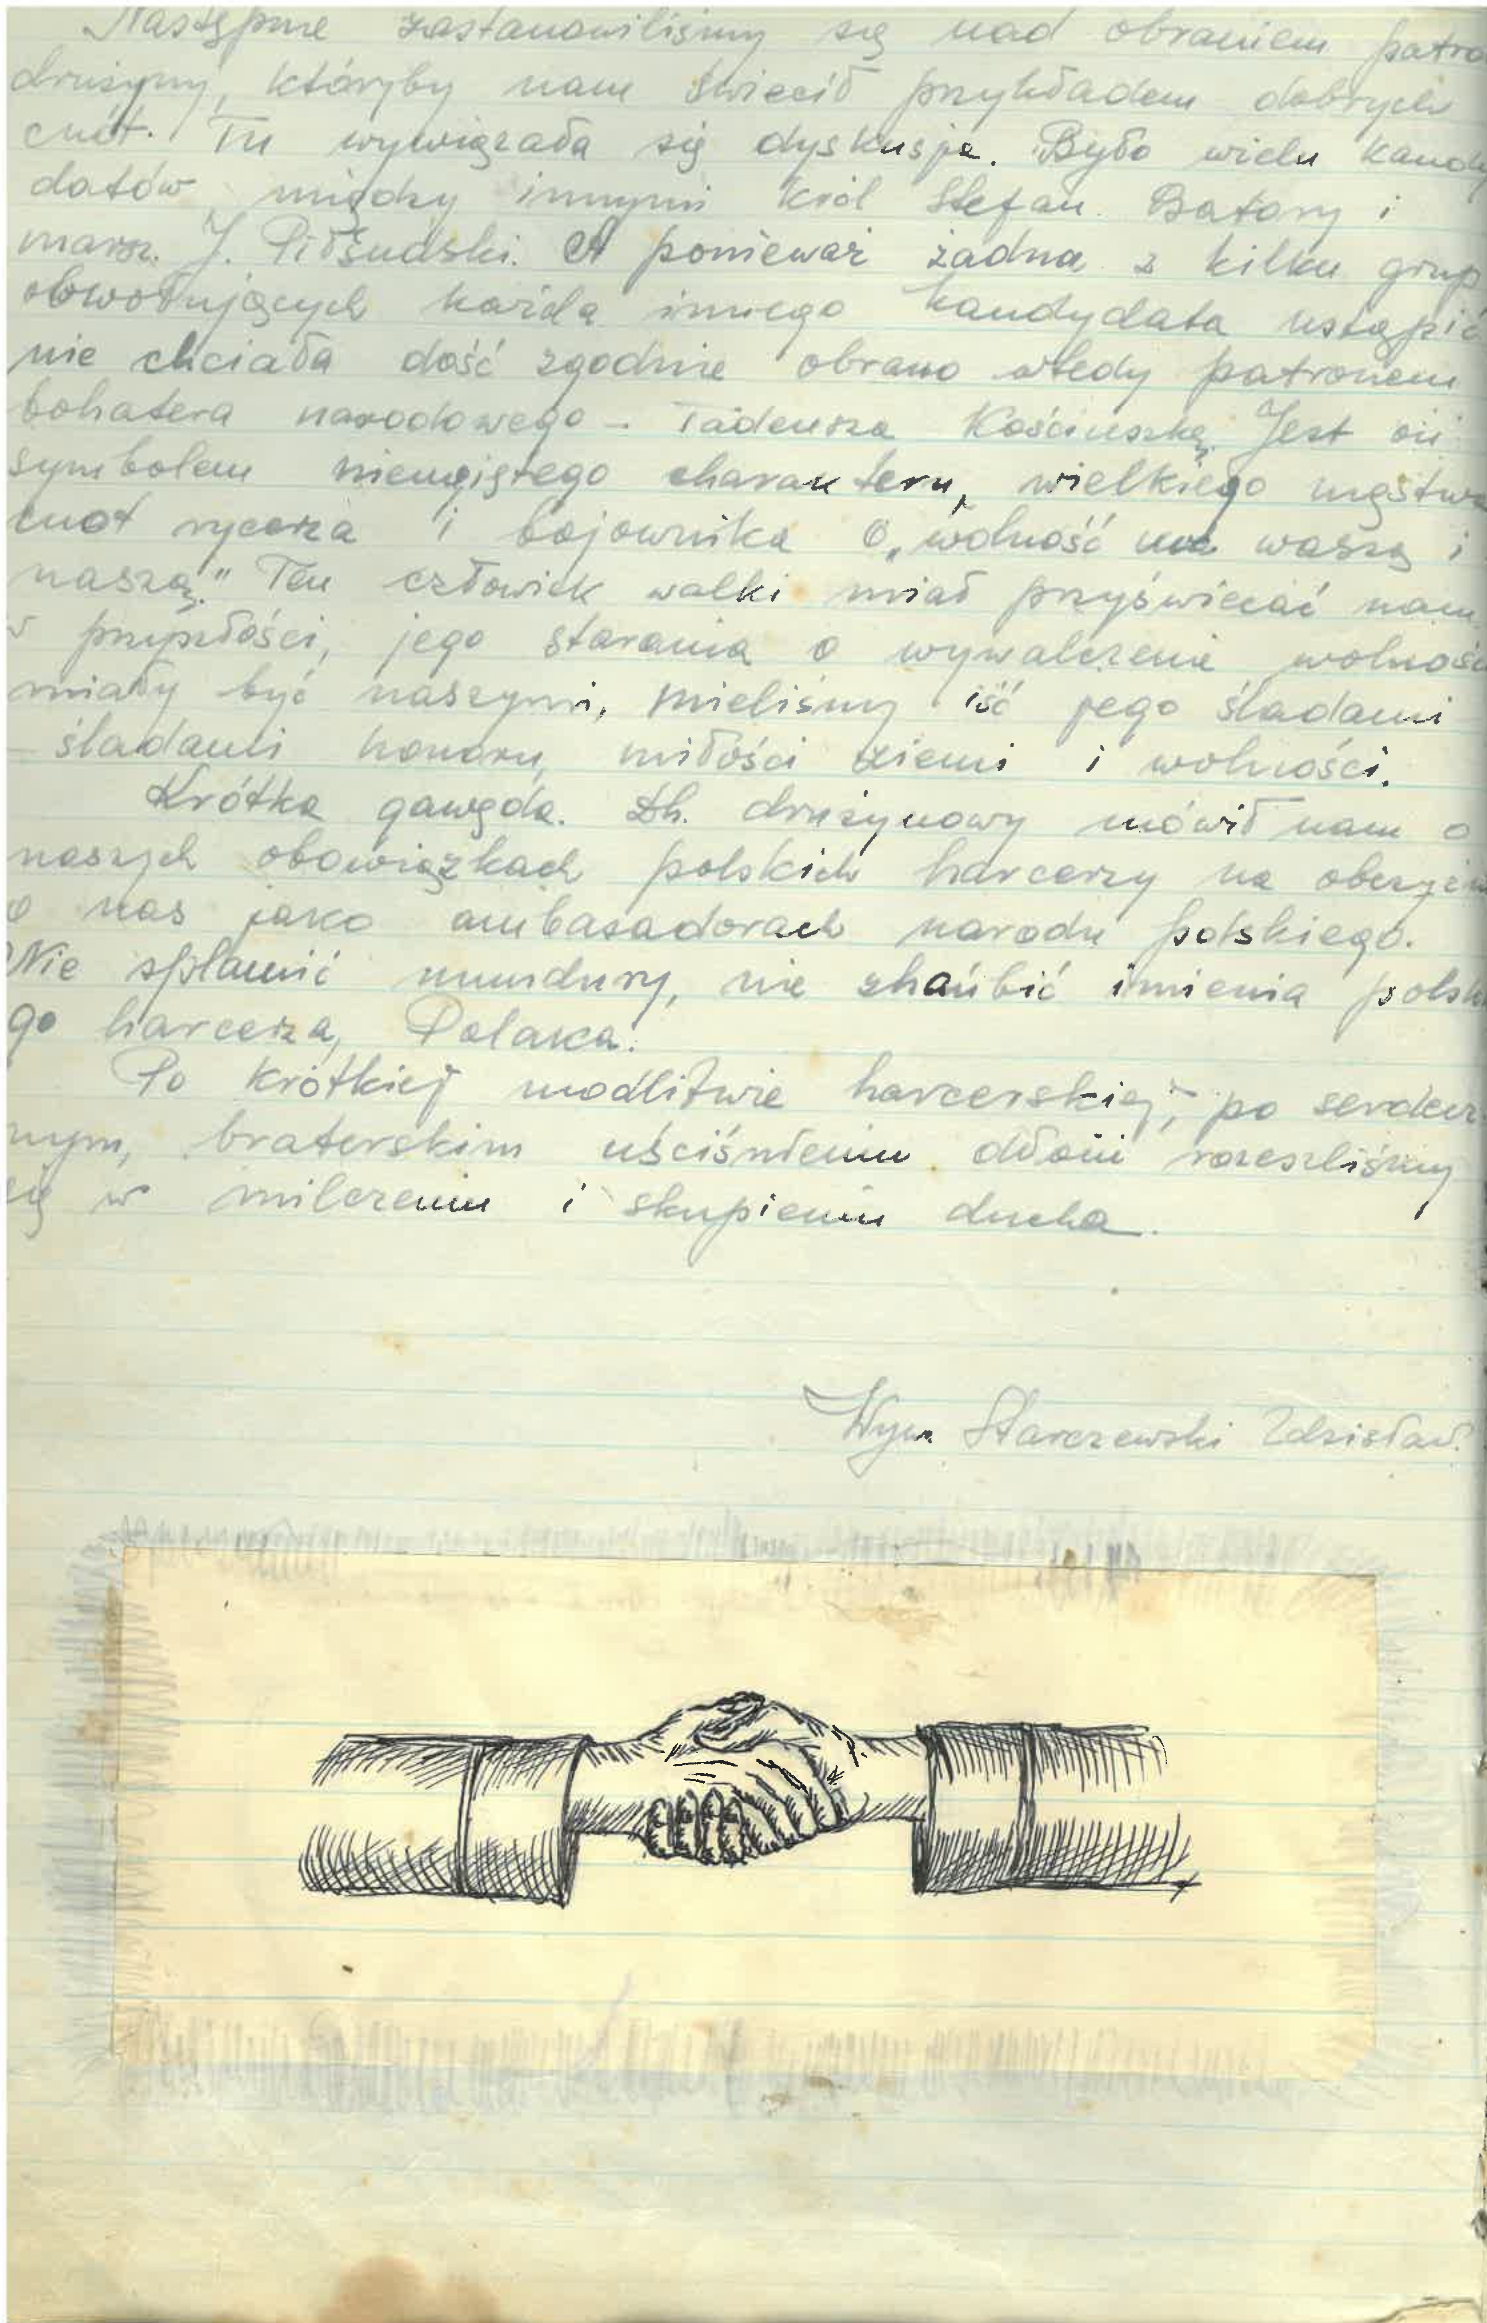 Następnie zastanowiliśmy się nad obraniem patro
drużyny, któryby nam świecił przykładem dobrych
cnót. Tu wywiązała się dyskusja. Było wielu kandy
datów między innymi król Stefan Batory i
marsz. J. Piłsudski. A ponieważ żadna z kilku grup
obwołujących każda innego kandydata ustąpić
nie chciała dość zgodnie obrano wtedy patronem
bohatera narodowego - Tadeusza Kościuszkę. Jest on
symbolem nieugiętego charakteru, wielkiego męstwa
cnót rycerza i bojownika o „wolność waszą i
naszą." Ten człowiek walki miał przyświecać nam
w przyszłości, jego starania o wywalczenie wolności
miały być naszymi, mieliśmy iść jego śladami
- śladami honoru, miłości ziemi i wolności.
Krótka gawęda. Dh. drużynowy mówił nam o
naszych obowiązkach polskich harcerzy na obczyźn
o nas jako ambasadorach narodu polskiego.
Nie splamić munduru, nie zhańbić imienia polski
go harcerza, Polaka.
Po krótkiej modlitwie harcerskiej, po serdecz
nym, braterskim uściśnieniu dłoni rozeszliśmy
się w milczeniu i skupieniu ducha.
Wyw. Starczewski Zdzisław.